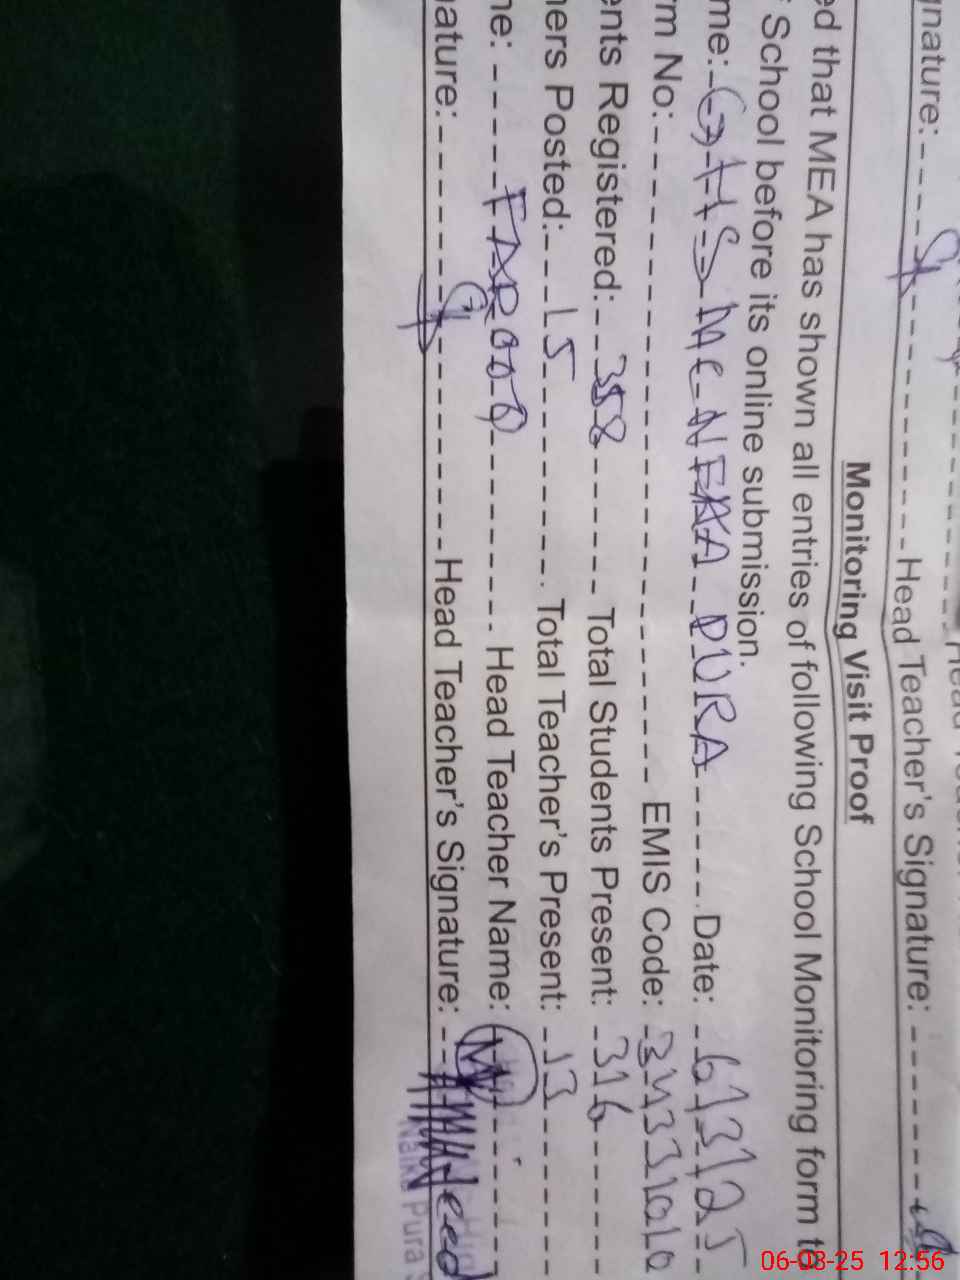 gnature: Head Teacher's Signature:
Monitoring Visit Proof
ed that MEA has shown all entries of following School Monitoring form to
School before its online submission.
me: GHS NAIKA PURA Date: 6/3/25
rm No: EMIS Code:
ents Registered: 358 Total Students Present: 316
hers Posted: 15 Total Teacher's Present: 13
ne: FAROOQ Head Teacher Name:
nature: Head Teacher's Signature:
Naika Pura
06-03-25 12:56